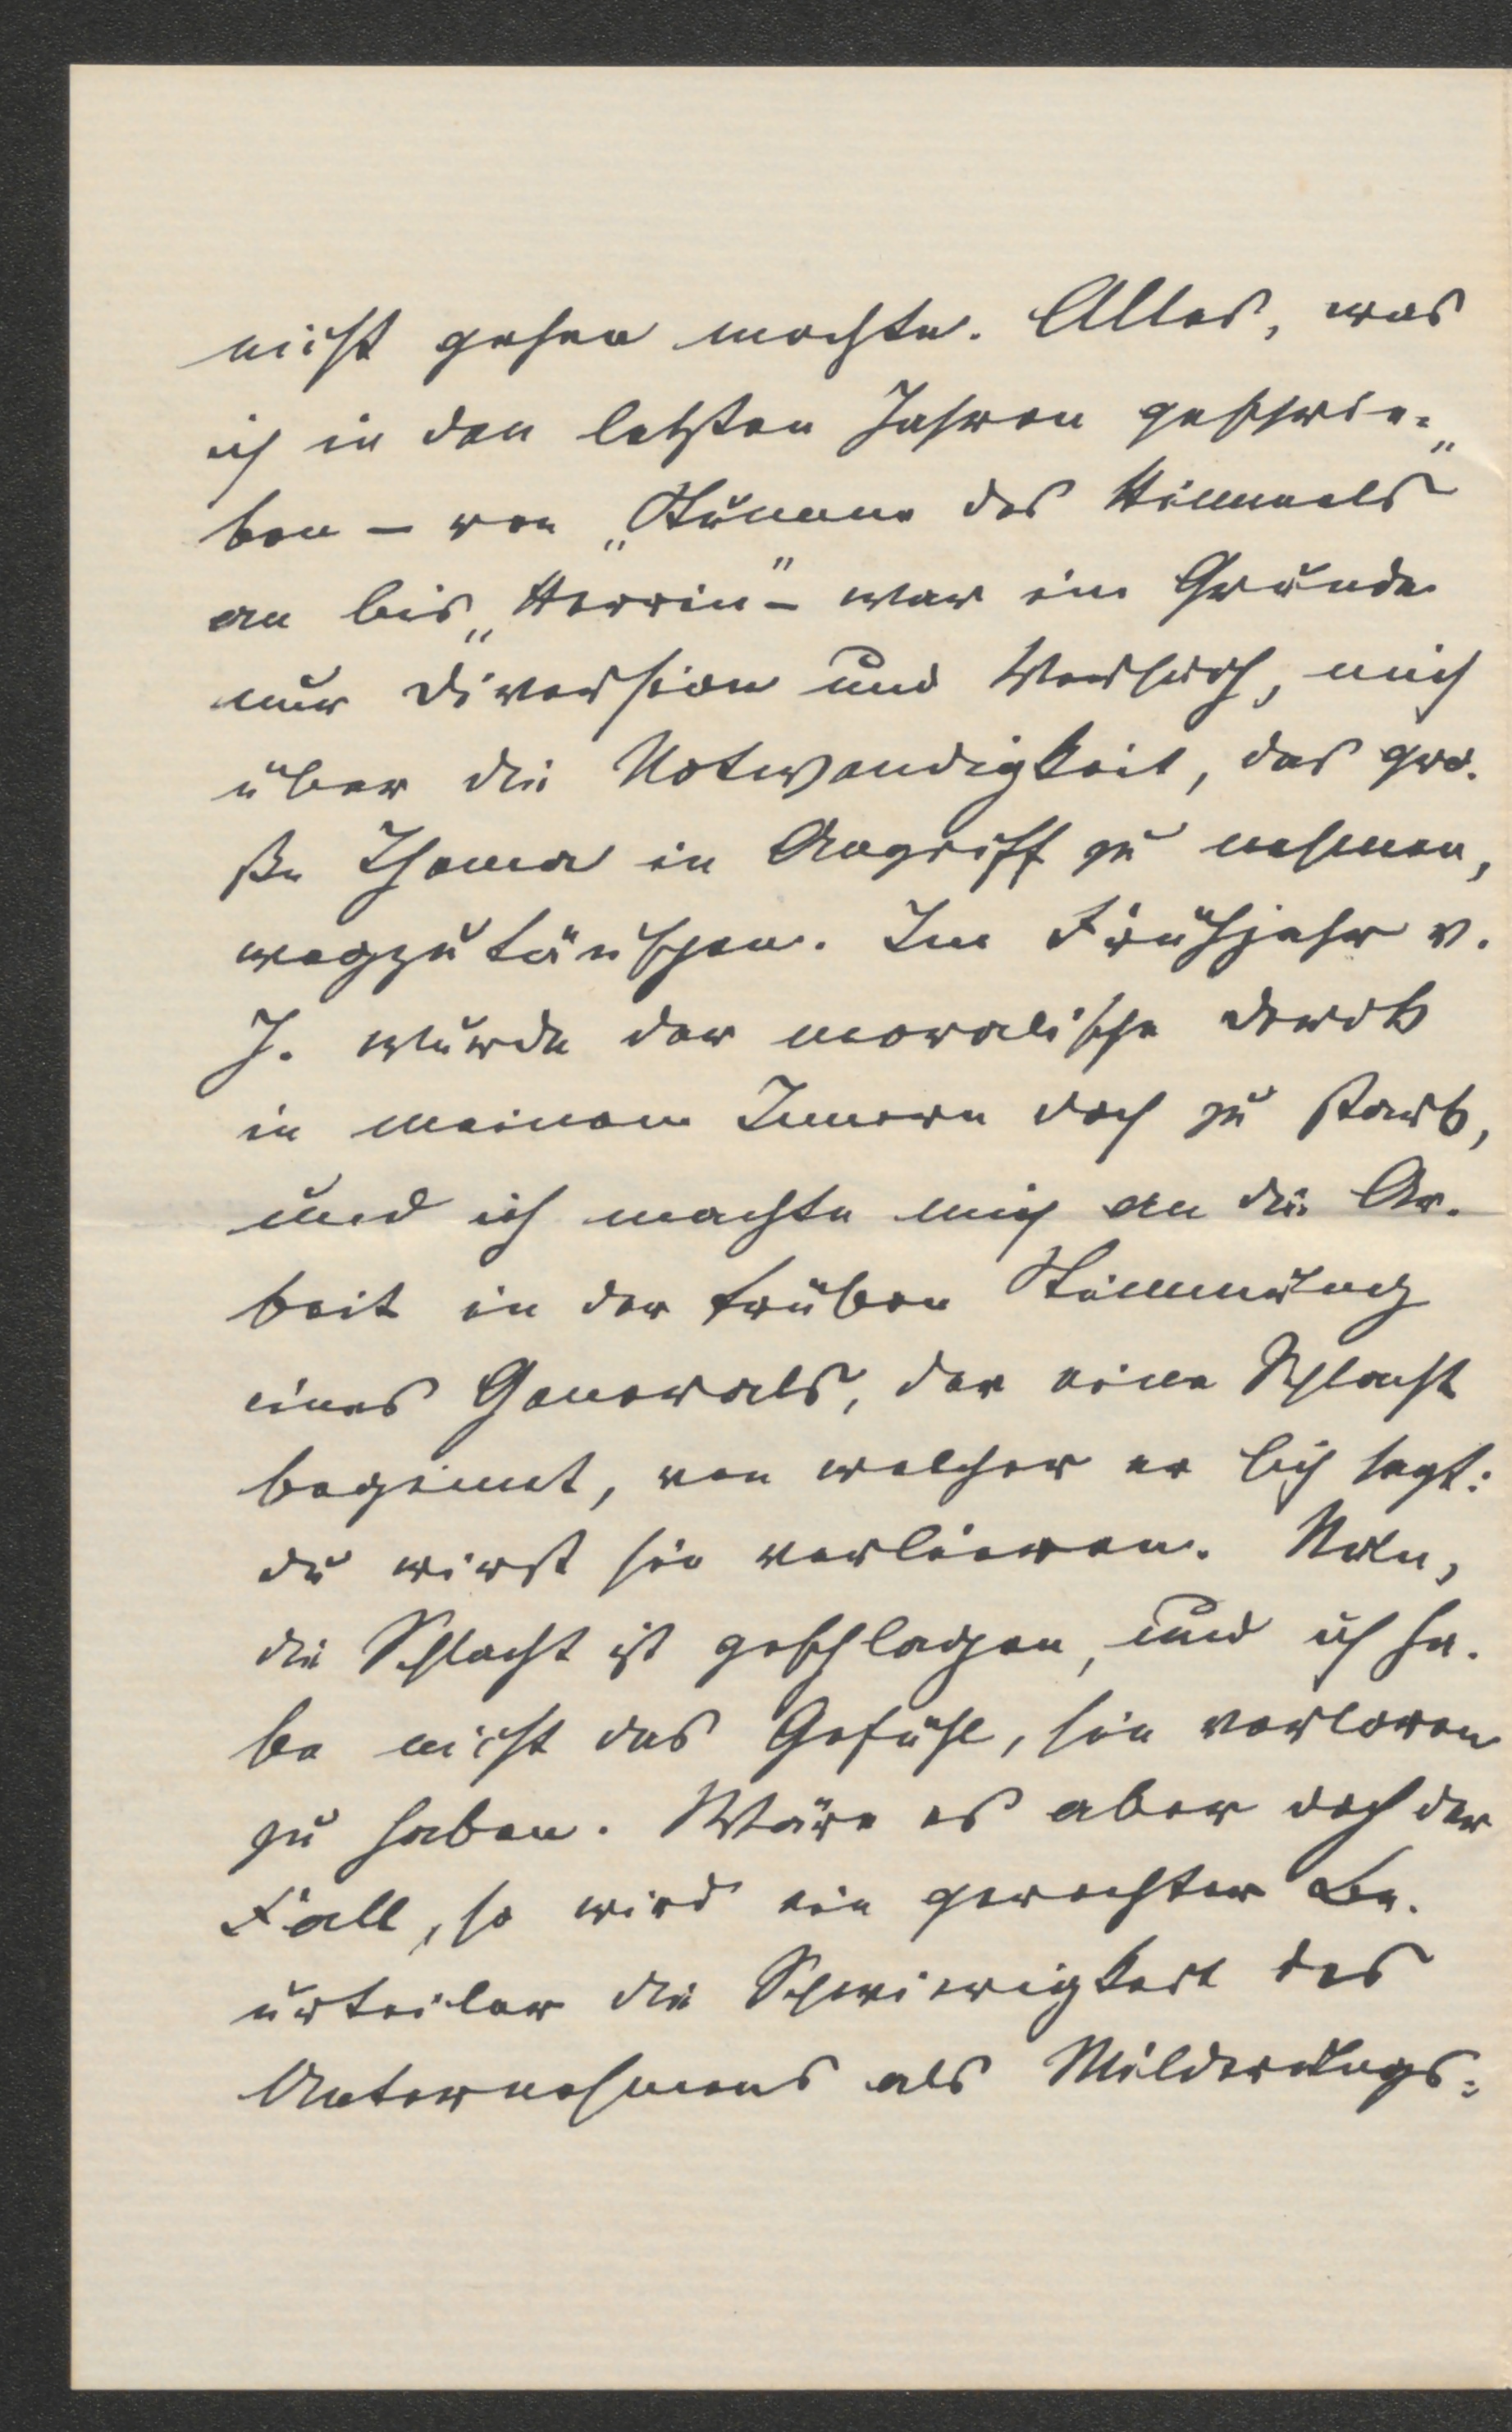 nicht gehen mochte. Alles, was
ich in den letzten Jahren geschrie-
ben – von „Stimme des Himmels"
an bis „Herrin" – war im Grunde
nur Diversion und Versuch, mich
über die Notwendigkeit, das gro-
ße Thema in Angriff zu nehmen,
wegzutäuschen. Im Frühjahr v.
J. wurde der moralische Druck
in meinem Innern doch zu stark,
und ich machte mich an die Ar-
beit in der trüben Stimmung
eines Generals, der eine Schlacht
beginnt, von welcher er sich sagt:
du wirst sie verlieren. Nun,
die Schlacht ist geschlagen, und ich ha-
be nicht das Gefühl, sie verloren
zu haben. Wäre es aber doch der
Fall, so wird ein gerechter Be-
urteiler die Schwierigkeit des
Unternehmens als Milderungs-